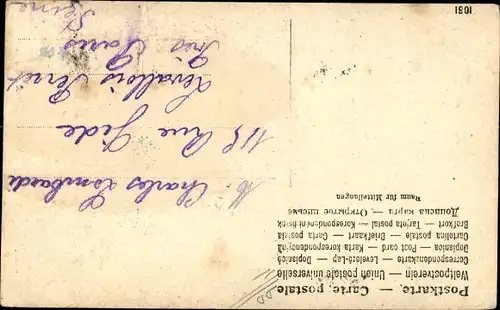 Postkarte. — Carte postale
Weltpostverein — Union postale universelle
Correspondenzkarte — Levelező-Lap — Dopisnica
Dopisnica — Post card — Karta korespondencyjna
Cartolina postale — Briefkaart — Carta postala
Brefkort — Tarjeta postal — Korespondenční lístek
Дописна карта — Открытое письмо
Raum für Mitteilungen
M. Charles Lombardi
115 Rue Gide
Levallois Perret
Près Paris
Seine
1081